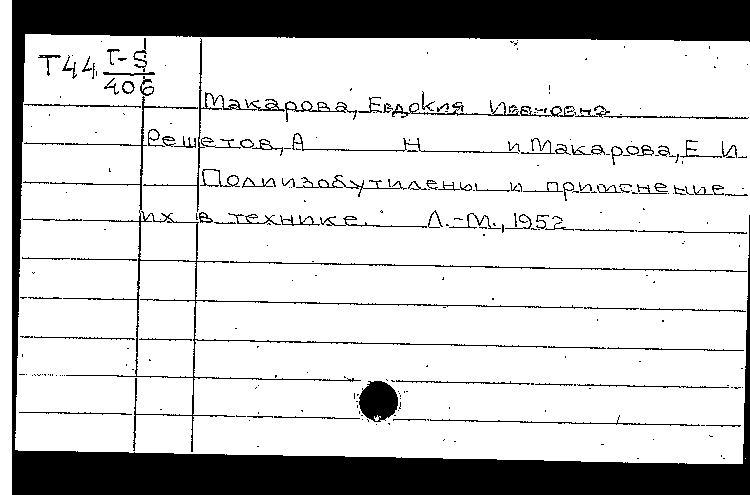 Т44 Т-5
406
Макарова, Евдокия Ивановна
Решетов, А Н и Макарова, Е И
Полиизобутилены и применение
их в технике. Л.-М., 1952